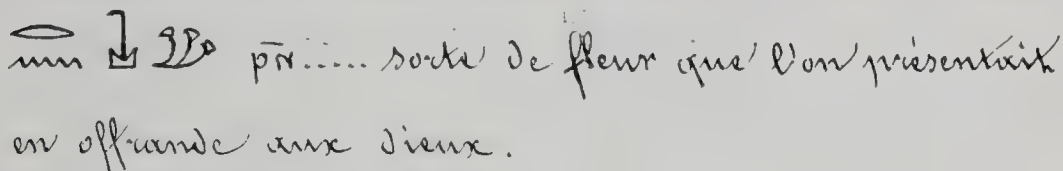 𓂋𓈖 ⲣ̄ⲛ..... sorte de fleur que l'on présentait
en offrande aux dieux.